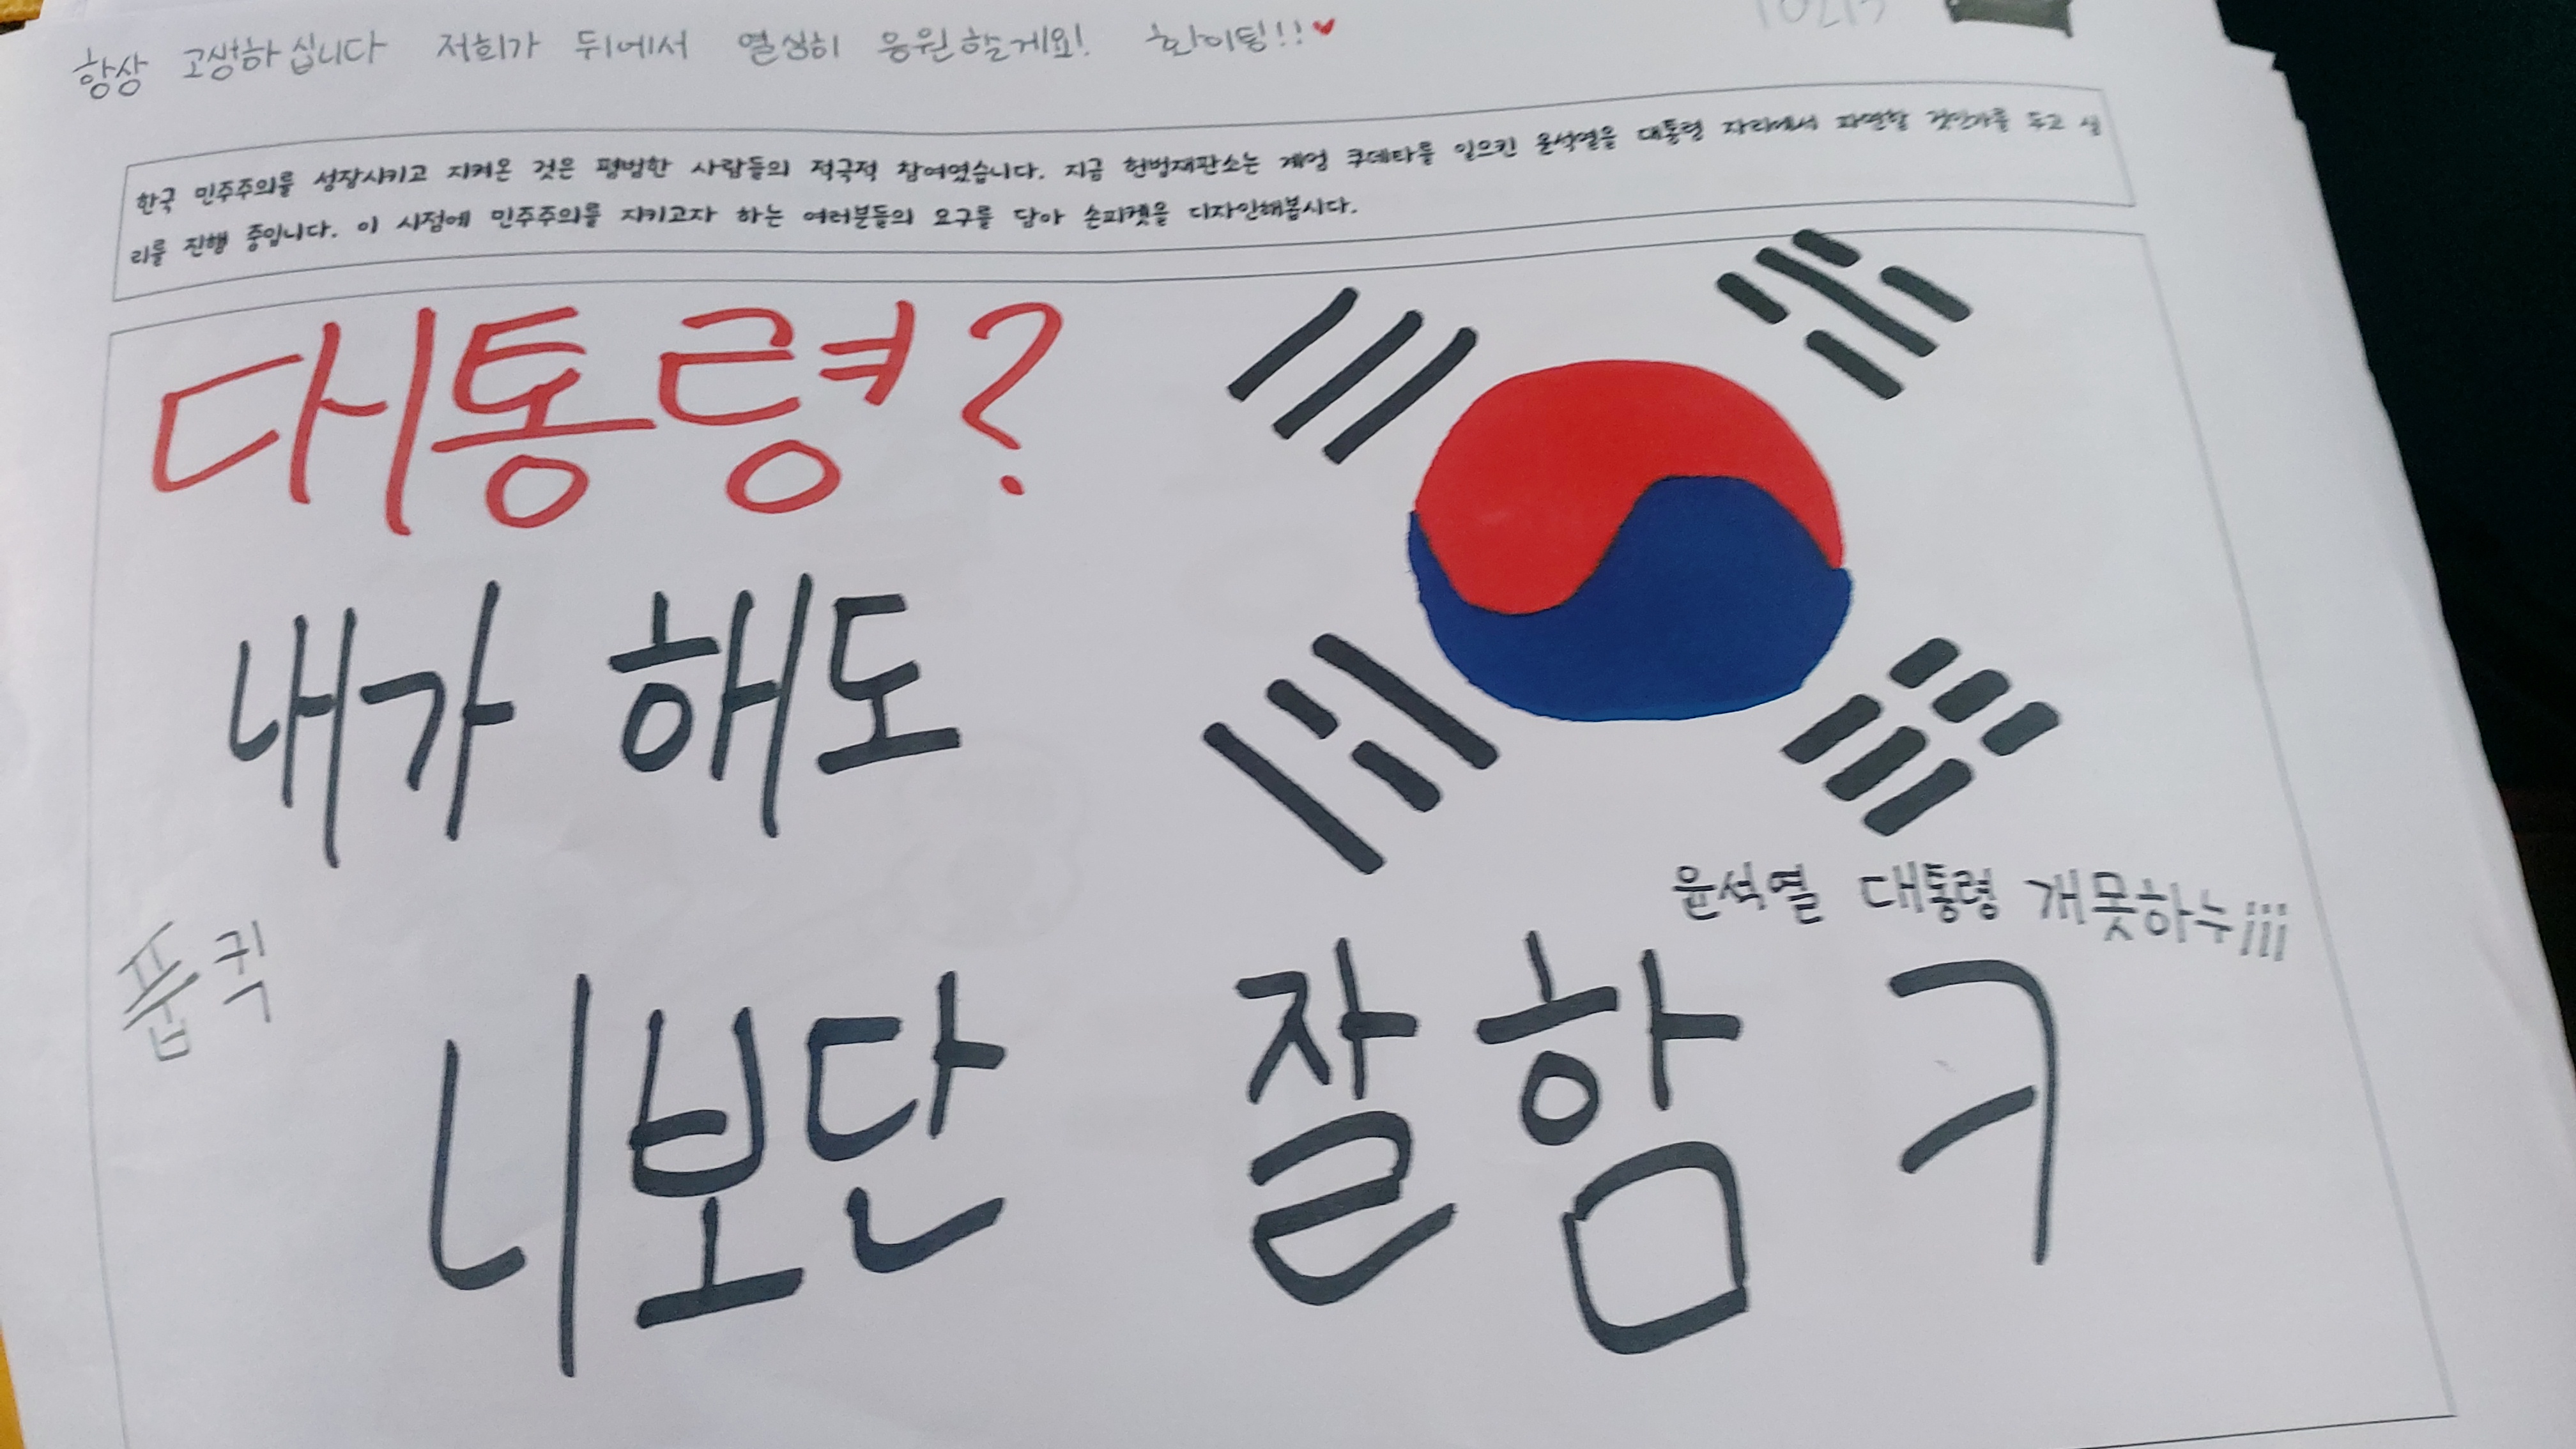 항상 고생하십니다 저희가 뒤에서 열심히 응원할게요! 화이팅!!♥
한국 민주주의를 성장시키고 지켜온 것은 평범한 사람들의 적극적 참여였습니다. 지금 헌법재판소는 계엄 쿠데타를 일으킨 윤석열을 대통령 자리에서 파면할 것인가를 두고 심
리를 진행 중입니다. 이 시점에 민주주의를 지키고자 하는 여러분들의 요구를 담아 손피켓을 디자인해봅시다.
대통령?
내가 해도
윤석열 대통령 개못하누;;;
품퀵
니보단 잘함 ㅋ